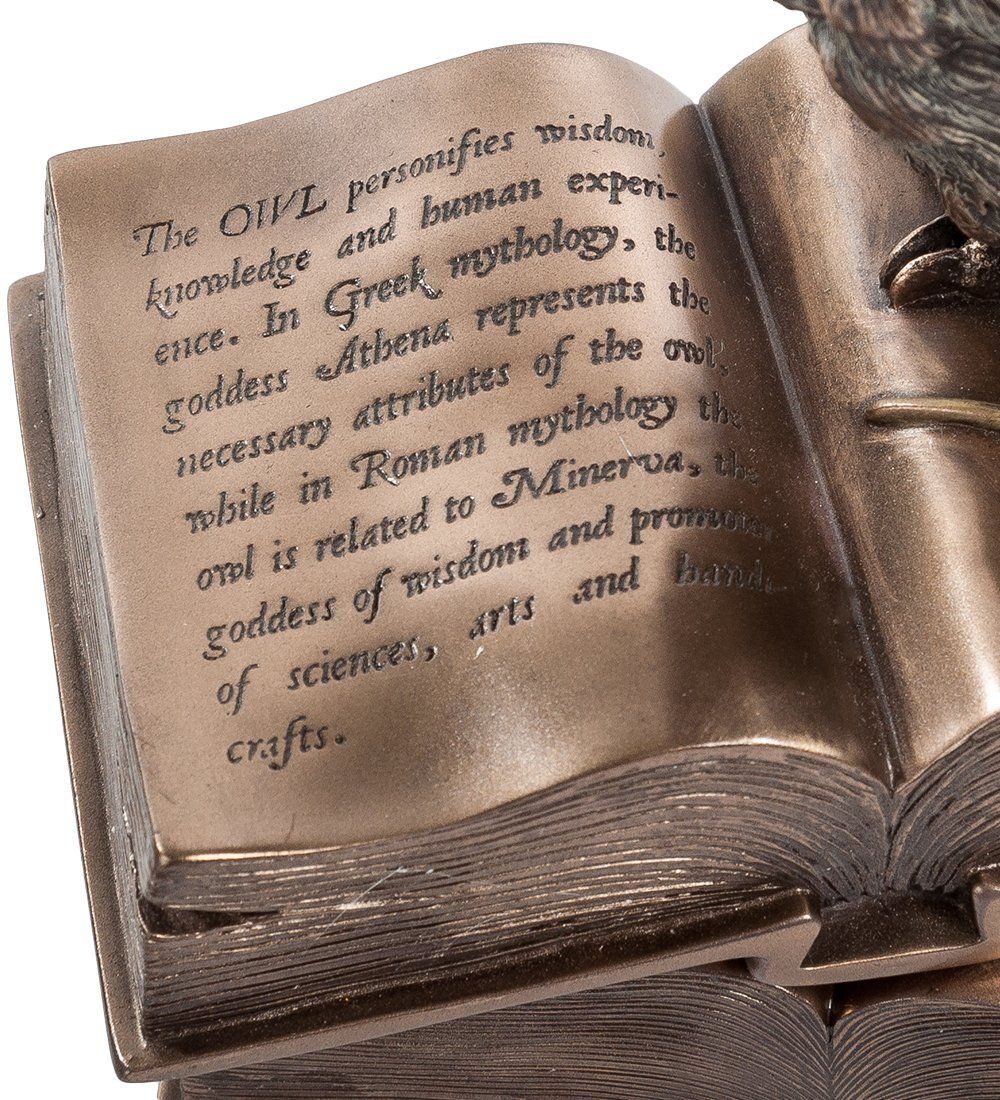 The OWL personifies wisdom,
knowledge and human experi-
ence. In Greek mythology, the
goddess Athena represents the
necessary attributes of the owl,
while in Roman mythology the
owl is related to Minerva, the
goddess of wisdom and promoter
of sciences, arts and hand-
crafts.